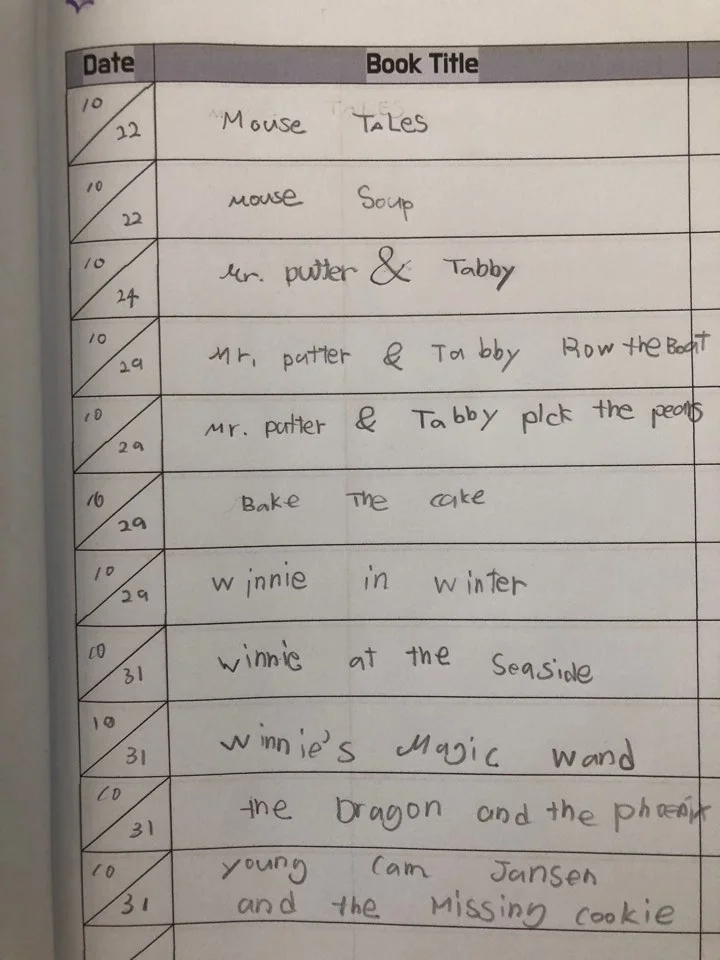 Date Book Title
10/22 Mouse TALes
10/22 Mouse Soup
10/24 Mr. putter & Tabby
10/29 Mr. putter & Tabby Row the Boat
10/29 Mr. putter & Tabby pick the pears
10/29 Bake The cake
10/29 winnie in winter
10/31 winnie at the Seaside
10/31 winnie's Magic wand
10/31 the Dragon and the phoenix
10/31 young Cam Jansen
and the Missing cookie